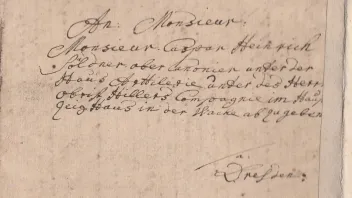 An Monsieur.
Monsieur Caspar Heinrich
Söldner ober Canonier unter der
Haus Artilerie unter des Herrn
Obrist Hillers Compagnie im Haup
Zeig Haus in der Wache ab Zugeben
a
Dresden.